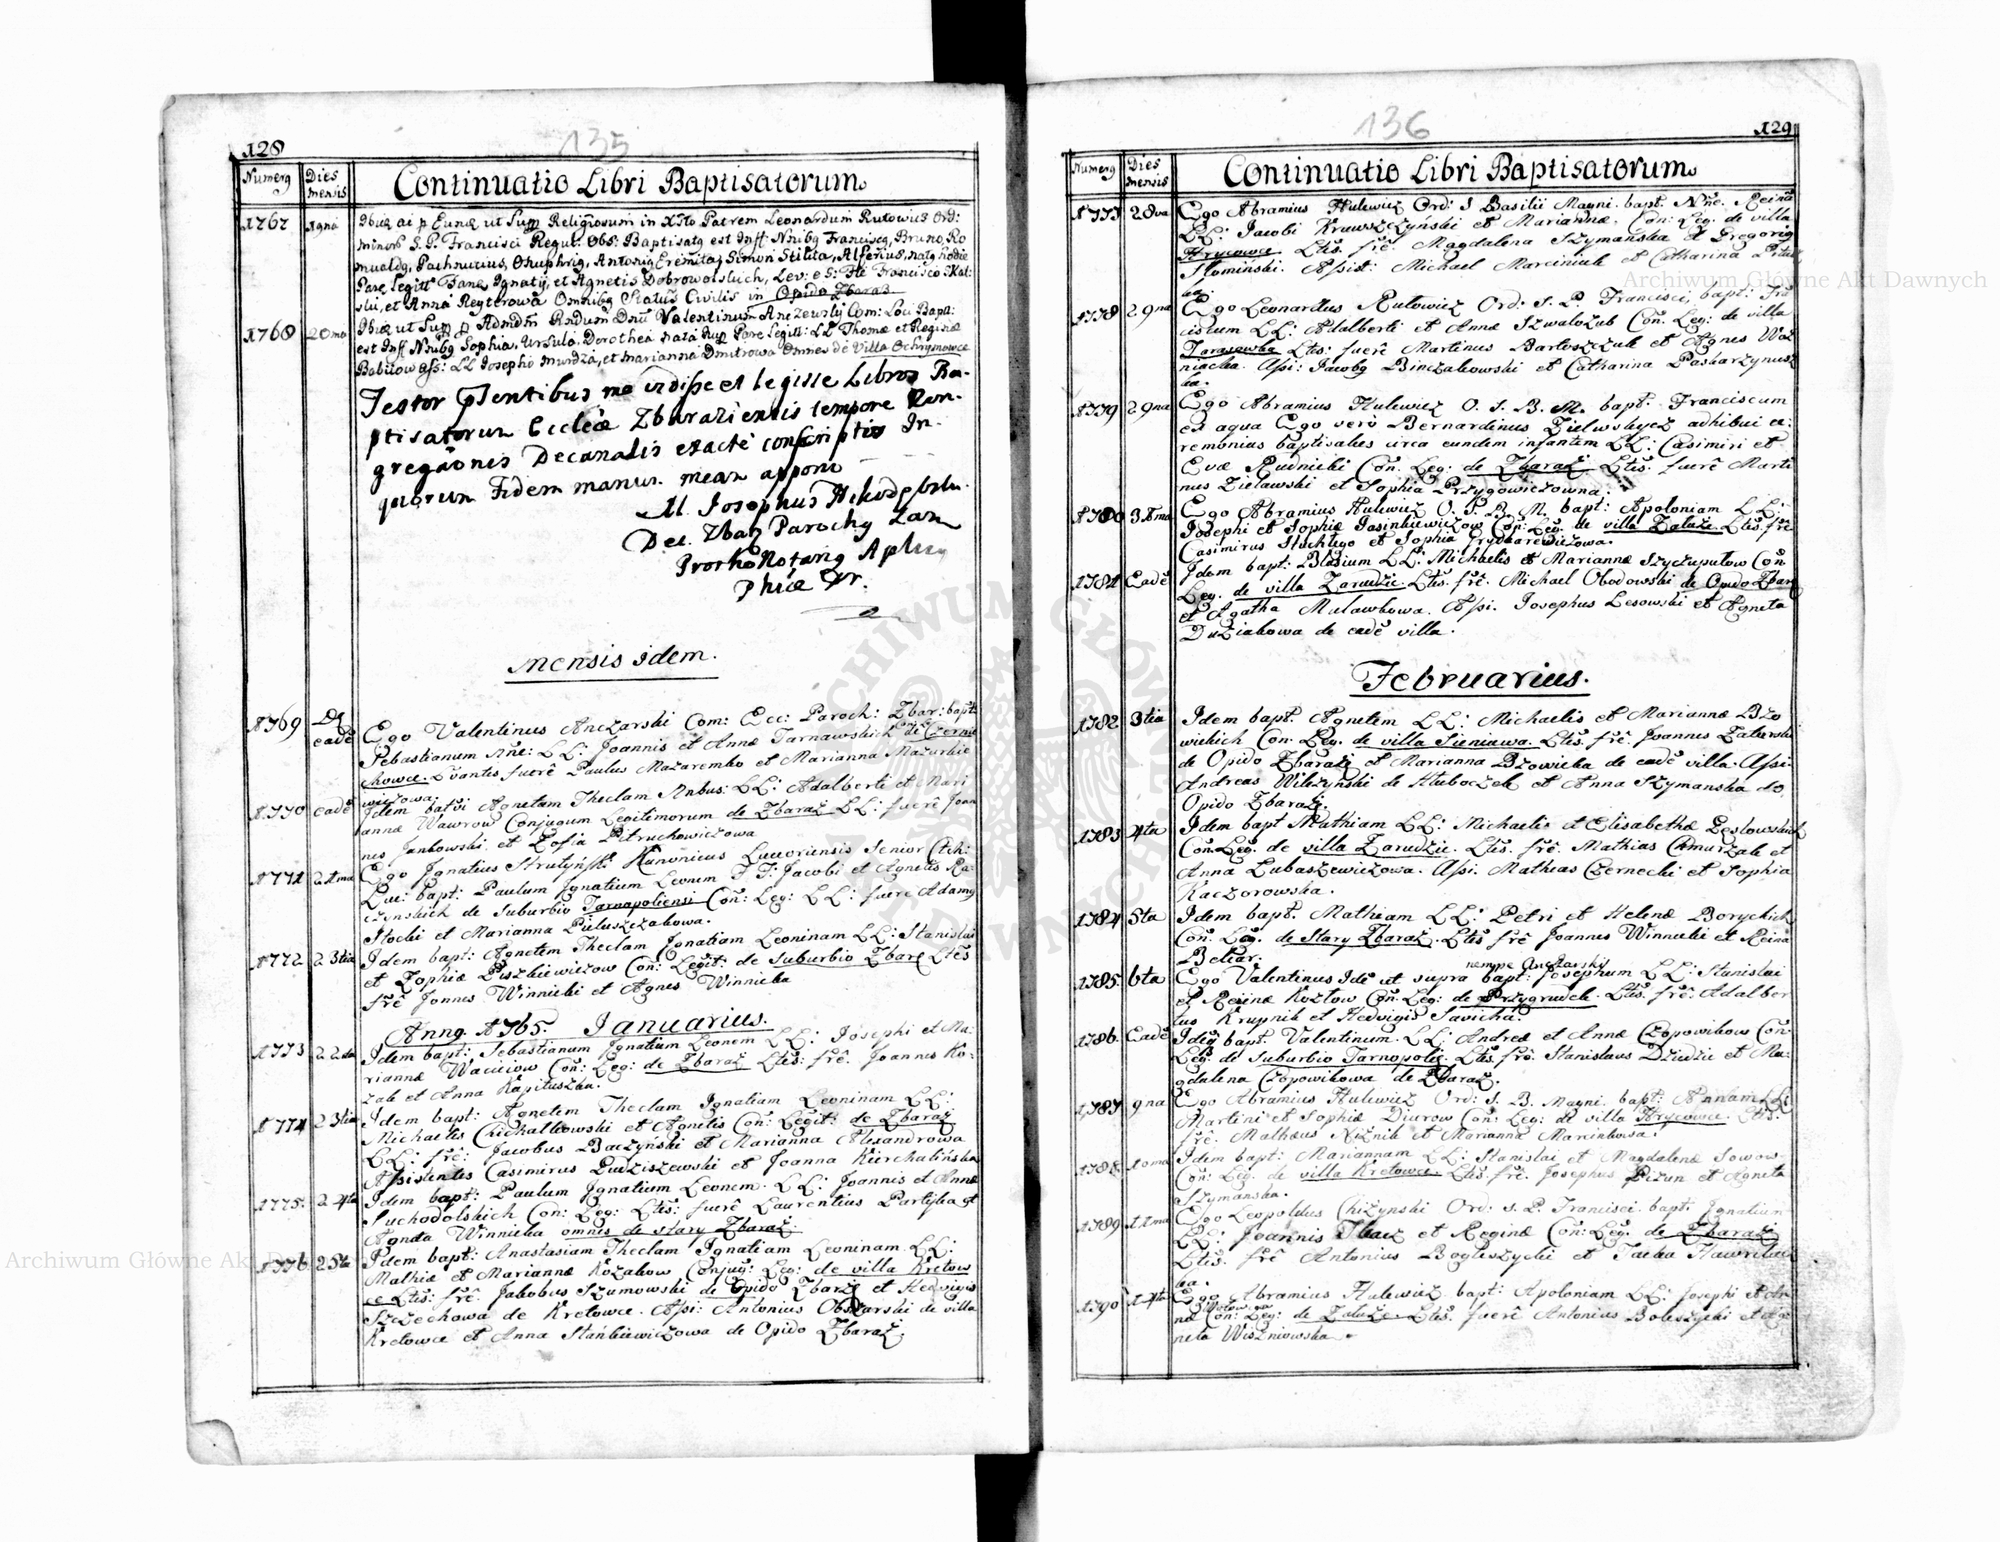 128
135
Numerg
Dies mensis
Continuatio Libri Baptisatorum.
1767
19na
Religiosum in Xsto Patrem Leonardum Rutowicz Ord:
minor S. P. Francisci Regul: Obs: Baptisatg est Inff: Nnibg Franciscg, Bruno, Ro
mualdg, Pachnutius, Onuphrig, Antonig Eremita, Simon Stilita, Alferius, natg hodie
Ignatij, et Agnetis Dobrowolskich, Lev: e S: Francisco Skal:
ski, et Anna Reyterowa Omnibg Status Civilis in Opido Zbaraż
1768
20ma
Valentinum Anczewskij Com: Loci Bapti:
est Inff Nnibg Sophia, Ursula, Dorothea nata Legitt: LL Thomæ et Reginæ
Babiiow LL Josepho Mundza, et Marianna Dmitrowa Omnes de Villa Ochrymowce
Testor Psentibus me vidisse et legisse Libros Ba-
ptisatorum Ecclæ Zbaraziensis tempore Con-
gregaonis Decanalis exactè conscriptos In-
quorum Fidem manum meam apponi
M. Josephus
Dec. Zbaz Parochg
Notarig Aplicg
Phiæ Dr.
mensis idem.
1769
Dg eadē
Ego Valentinus Anczarski Com: Ecc: Paroch: Zbar: bapt:
Sebastianum Nñe: LL: Joannis et Annæ Tarnawskich de Czerni
chowce. Lvantes fuerê Paulus Mazarembo et Marianna Mazurkie
wiczowa.
1770
eadē
Idem batvi Agnetam Theclam Nnbus: LL: Adalberti et Mari
annæ Wawrow Conjugum Legitimorum de Zbaraż LL: fuerê Joan
nes Jankowski et Zofia Pitruchowiczowa
1771
21ma
Ego Ignatius Strutyński Kanonicus Luceoriensis Senior
Luc: bapt: Paulum Ignatium Leonem Jacobi et Agnetis Ra
czynskich de Suburbio Tarnapoliensi Con: Leg: LL: fuere Adamg
Stocki et Marianna Pieluszczakowa.
1772
23tia
Idem bapt: Agnetem Theclam Ignatiam Leoninam LL: Stanislai
et Zophiæ Piszkiewiczow Con: Legit: de Suburbio Zbarz Ltēs
frê Joñnes Winnicki et Agnes Winnicka
Anng. 1765. Januarius.
1773
22da
Idem bapt: Sebastianum Ignatium Leonem LL: Josephi et Ma:
riannæ Waciiow Con: Leg: de Zbaraż Ltēs: frê. Joannes Ko:
zak et Anna Kapituszka.
1774
23tia
Idem bapt: Agnetem Theclam Ignatiam Leoninam LL:
Michaelis Chichałkowski et Agnetis Con: Legit: de Zbaraż
LL: frê: Jacobus Baczyński et Marianna Alexandrowa
Assistentes Casimirus Pudziszewski et Joanna Kierchalińska
1775.
24ta
Idem bapt: Paulum Ignatium Leonem. LL: Joannis et Annæ
Suchodolskich Con: Leg: Ltēs: fuerê Laurentius Partyka et
Agneta Winnicka omnes de stary Zbaraż.
1776
25ta
Idem bapt: Anastasiam Theclam Ignatiam Leoninam LL:
Mathiæ et Mariannæ Kozakow Conjug: Leg: de villa Kretow
ce Ltēs: frê. Jakobus Szumowski de Opido Zbarż et Hedvigis
Szczechowa de Kretowce. Assi: Antonius Obszarski de villa
Kretowce et Anna Stańkiewiczowa de Opido Zbaraż.
136
129
Numerg
Dies mensis
Continuatio Libri Baptisatorum.
1777
28va
Ego Abramius Hulewicz Ord: S Basilii Magni. bapt. Nñe. Reinā
LL: Jacobi Krawszczyński et Mariannæ. Con: Leg. de villa
Hrycowce. Ltēs. frê. Magdalena Szymańska et Gregorig
Słomiński. Assist: Michael Marciniak et Catharina
1778
29na
Ego Leonardus Rutowicz Ord: S. P. Francisci, bapt: Frā
ciscum LL: Adalberti et Annæ Szwalożub Con. Leg: de villa
Tarasowka Ltēs: fuerê Martinus Bartoszczuk et Agnes Woz
niacka. Assi: Jacobg Binczakowski et Catharina Paskarzynusz
ka.
1779
29na
Ego Abramius Hulewicz O. S. B. M. bapt. Franciscum
ex aqua Ego verò Bernardinus adhibui ce:
remonias baptisales circa eundem infantem LL: Casimiri et
Evæ Rudnicki Con. Leg: de Zbaraż Ltēs. fuerê Marti
nus Zielawski et Sophia Przygowiczowna.
1780
3Xma
Ego Abramius Hulewicz O. S. B. M. bapt: Apoloniam LL:
Josephi et Sophiæ Jasinkiewiczow Con: Leg. de villa Załuże. Ltēs. frê
Casimirus Stuchlego et Sophia
1781
Eadē
Idem bapt: Blasium LL: Michaelis et Mariannæ Szyczuputow Con.
Leg. de villa Zarudzie. Ltēs. frê. Michael Obodowski de Opido Zbarż
et Agatha Mulawkowa. Assi. Josephus Lesowski et Agneta
Duziakowa de eadē villa.
Februarius.
1782.
3tia
Idem bapt. Agnetem LL: Michaelis et Mariannæ Bzo
wickich Con. Leg. de villa Sieniawa. Ltēs. frê. Joannes Zaberski
de Opido Zbaraż et Marianna Bzowicka de eadē villa. Assi.
Andreas Wilczyński de Hluboczek et Anna Szymanska do
Opido Zbaraż.
1783
4ta
Idem bapt Mathiam LL: Michaelis et Elisabethæ Pestowskich
Con. Leg. de villa Zarudzie. Ltēs. frê. Mathias Chmurzak et
Anna Lubaszewiczowa. Assi. Mathias Czernecki et Sophia
Kaczorowska.
1784
5ta
Idem bapt. Mathiam LL: Petri et Helenæ Boryckich
Con. Leg. de Stary Zbaraż. Ltēs frê Joannes Winnicki et Reina
Bekiar.
1785.
6ta
nempe Anczarski
Ego Valentinus Idē ut supra bapt: Josephum LL: Stanislai
et Reinæ Kozłow Con. Leg: de Przygrudek. Ltēs. frê. Adalber
tus Krupnik et Hedvigis Savicha.
1786.
Eadē
Idēg bapt. Valentinum. LL: Andreæ et Annæ Czopowikow Con:
Leg. de Suburbio Tarnopolis. Ltēs. frê. Stanislaus Dziudzic et Ma:
gdalena Czopowikowa de Zbaraż.
1787
9na
Ego Abramius Hulewicz Ord: S. B. Magni. bapt: Annam LL:
Martini et Sophiæ Diurow Con: Leg: de villa Hrycowce. Ltēs.
frê. Mathæus Niźnik et Marianna Marcinkowa.
1788.
10ma
Idem bapt: Mariannam LL: Stanislai et Magdalenæ Sowow.
Con: Leg. de villa Kretowce. Ltēs. frê. Josephus Pizun et Agneta
Szymanska.
1789
11ma
Ego Leopoldus Chiżynski Ord: S. P. Francisci. bapt. Ignatium
LL: Joannis Tkacz et Reginæ Con: Leg: de Zbaraż
Ltēs. frê Antonius Bogleszycki et Tacka Hawrilac
ka.
1790
14ta
Ego Abramius Hulewicz bapt: Apoloniam LL: Josephi et An
næ Con: Leg: de Załuże. Ltēs. fuerê Antonius Boleszycki et Ag
neta Wiszniowska.
Archiwum Główne Akt Dawnych
Archiwum Główne Akt Dawnych
ARCHIWUM GŁÓWNE AKT DAWNYCH